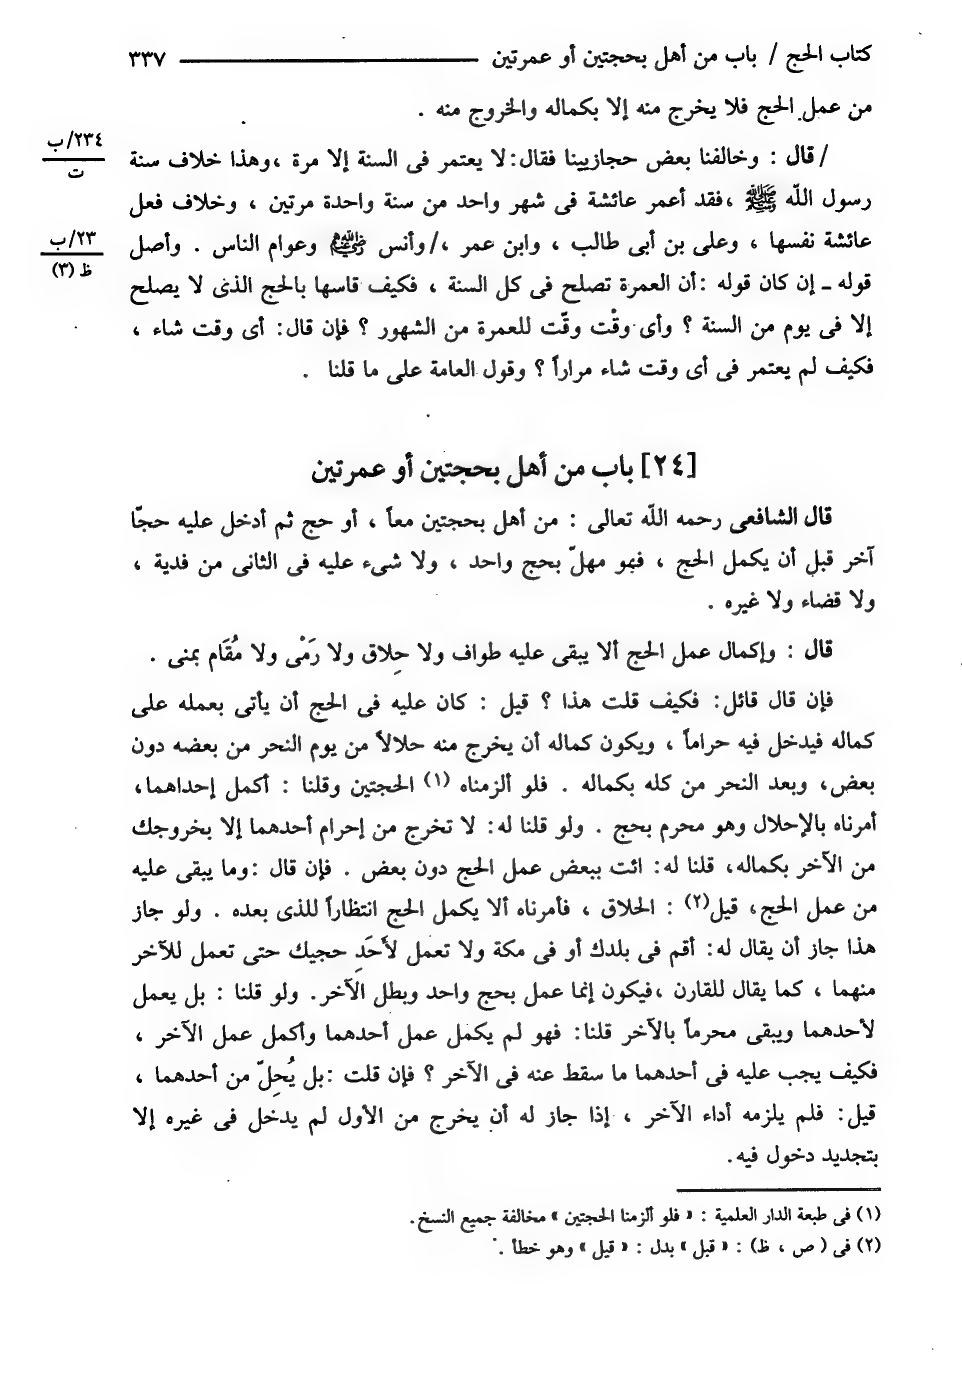 كتاب الحج / باب من أهل بحجتين أو عمرتين ٣٣٧
من عمل الحج فلا يخرج منه إلا بكماله والخروج منه .
/ قال : وخالفنا بعض حجازيينا فقال: لا يعتمر فى السنة إلا مرة ،وهذا خلاف سنة
٢٣٤/ب
ت
رسول الله ﷺ ،فقد أعمر عائشة فى شهر واحد من سنة واحدة مرتين ، وخلاف فعل
عائشة نفسها ، وعلى بن أبى طالب ، وابن عمر ،/وأنس رضي الله عنهم وعوام الناس . وأصل
٢٣/ب
ظ (٣)
قوله ـ إن كان قوله :أن العمرة تصلح فى كل السنة ، فكيف قاسها بالحج الذى لا يصلح
إلا فى يوم من السنة ؟ وأى وقْت وقّت للعمرة من الشهور ؟ فإن قال: أى وقت شاء ،
فكيف لم يعتمر فى أى وقت شاء مراراً ؟ وقول العامة على ما قلنا .
[٢٤] باب من أهل بحجتين أو عمرتين
قال الشافعى رحمه الله تعالى : من أهل بحجتين معاً ، أو حج ثم أدخل عليه حجّا
آخر قبل أن يكمل الحج ، فهو مهلّ بحج واحد ، ولا شىء عليه فى الثانى من فدية ،
ولا قضاء ولا غيره .
قال : وإكمال عمل الحج ألا يبقى عليه طواف ولا حِلاق ولا رَمْى ولا مُقَام بمنى .
فإن قال قائل: فكيف قلت هذا ؟ قيل : كان عليه فى الحج أن يأتى بعمله على
كماله فيدخل فيه حراماً ، ويكون كماله أن يخرج منه حلالاً من يوم النحر من بعضه دون
بعض، وبعد النحر من كله بكماله . فلو ألزمناه (١) الحجتين وقلنا : أكمل إحداهما،
أمرناه بالإحلال وهو محرم بحج . ولو قلنا له: لا تخرج من إحرام أحدهما إلا بخروجك
من الآخر بكماله، قلنا له: ائت ببعض عمل الحج دون بعض . فإن قال :وما يبقى عليه
من عمل الحج، قيل(٢) : الحلاق ، فأمرناه ألا يكمل الحج انتظاراً للذى بعده . ولو جاز
هذا جاز أن يقال له: أقم فى بلدك أو فى مكة ولا تعمل لأَحَدِ حجيك حتى تعمل للآخر
منهما ، كما يقال للقارن ،فيكون إنما عمل بحج واحد وبطل الآخر. ولو قلنا : بل يعمل
لأحدهما ويبقى محرماً بالآخر قلنا: فهو لم يكمل عمل أحدهما وأكمل عمل الآخر ،
فكيف يجب عليه فى أحدهما ما سقط عنه فى الآخر ؟ فإن قلت :بل يُحِلّ من أحدهما ،
قيل: فلم يلزمه أداء الآخر ، إذا جاز له أن يخرج من الأول لم يدخل فى غيره إلا
بتجديد دخول فيه.
(١) فى طبعة الدار العلمية : « فلو ألزمنا الحجتين » مخالفة جميع النسخ.
(٢) فى ( ص ، ظ) : « قبل » بدل : « قيل » وهو خطأ .